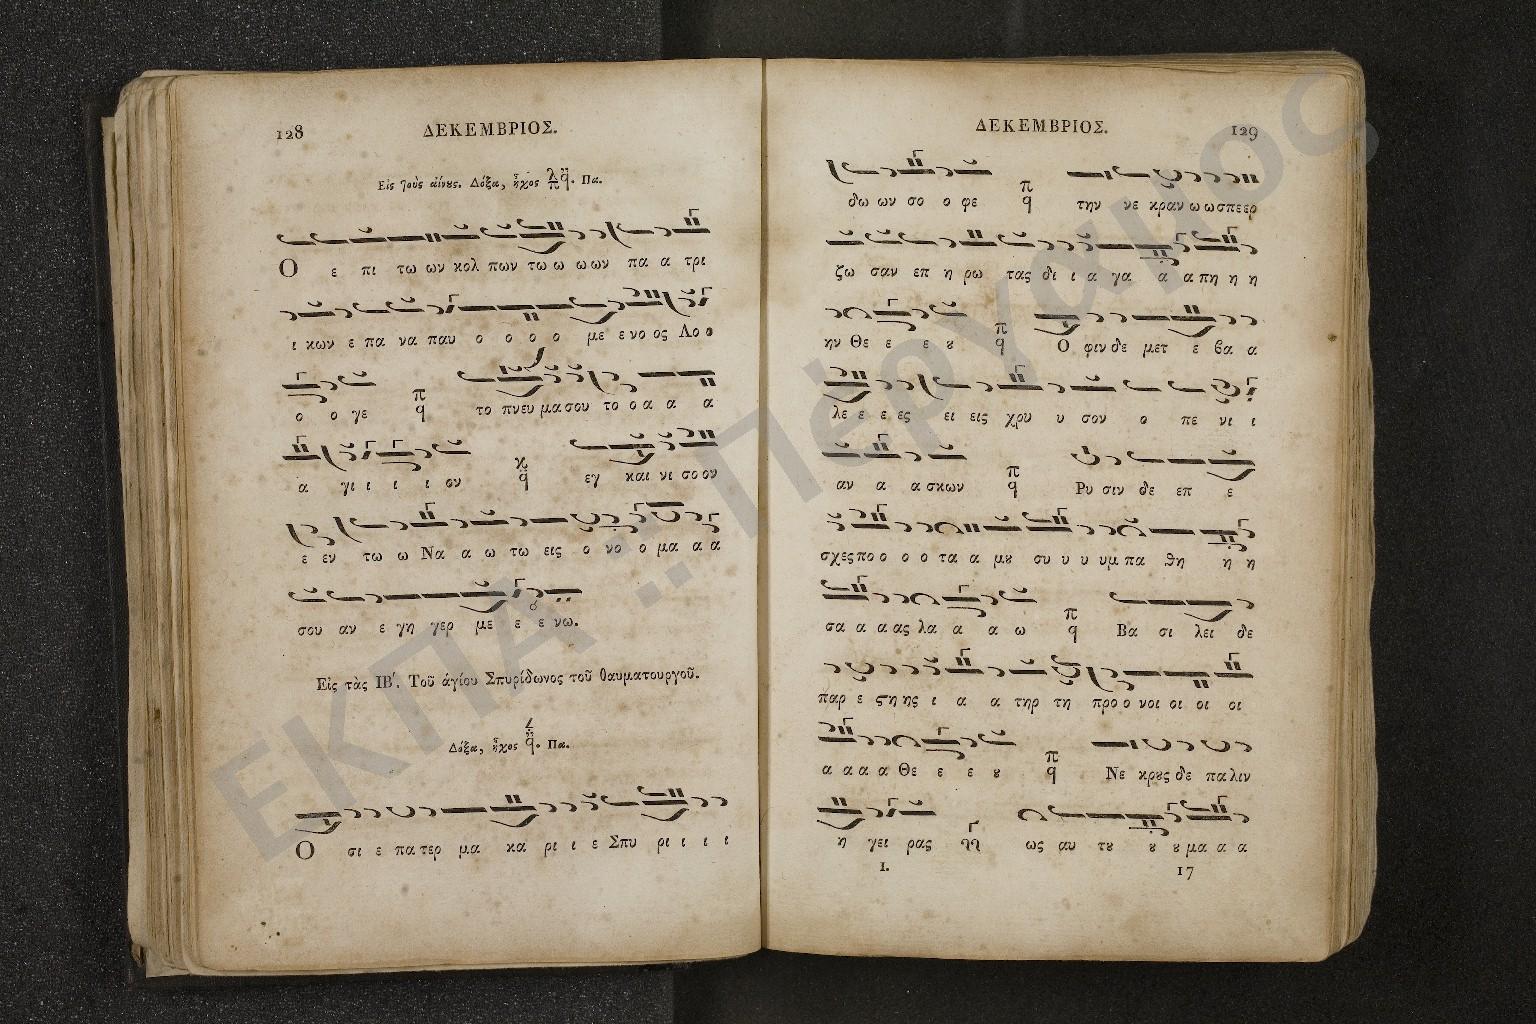 128
ΔΕΚΕΜΒΡΙΟΣ.
Εἰς τοὺς αἴνους. Δόξα, ἦχος λπq̈. Πα.
Ο ε πι τω ων κολ πων τω ω ω ων πα α τρι
ι κων ε πα να παυ ο ο ο ο με ε νο ος Λο ο
ο ο γε π q το πνευ μα σου το ο α α α
α γι ι ι ι ον κ q εγ και νι σο ον
ε εν τω ω Να α α ω τω εις ο νο ο μα α α
σου αν ε γη γερ με ε ε νω.
Εἰς τὰς ΙΒ'. Τοῦ ἁγίου Σπυρίδωνος τοῦ θαυματουργοῦ.
Δόξα, ἦχος q̈. Πα.
Ο σι ε πα τερ μα κα ρι ι ε Σπυ ρι ι ι ι
ΔΕΚΕΜΒΡΙΟΣ.
129
δω ων σο ο φε π q την νε κραν ω ω σπε ερ
ζω σαν επ η ρω τας δι ι α γα α α πη η η
ην Θε ε ε ȣ π q Ο φιν δε μετ ε βα α
λε ε ε ες ει εις χρυ υ σον ο πε νι ι
αν α α σκων π q Ρυ σιν δε επ ε
σχες πο ο ο ο τα α μȣ συ υ υ υμ πα θη η η
σα α α ας λα α α ω π q Βα σι λει δε
παρ ε ϛη ης ι α α τηρ τη προ ο νοι οι οι οι
α α α α Θε ε ε ȣ π q Νε κρȣς δε πα λιν
η γει ρας ως αυ τȣ ȣ ȣ μα α α
I.
17
ΕΚΠΑ :: Πέργαμος